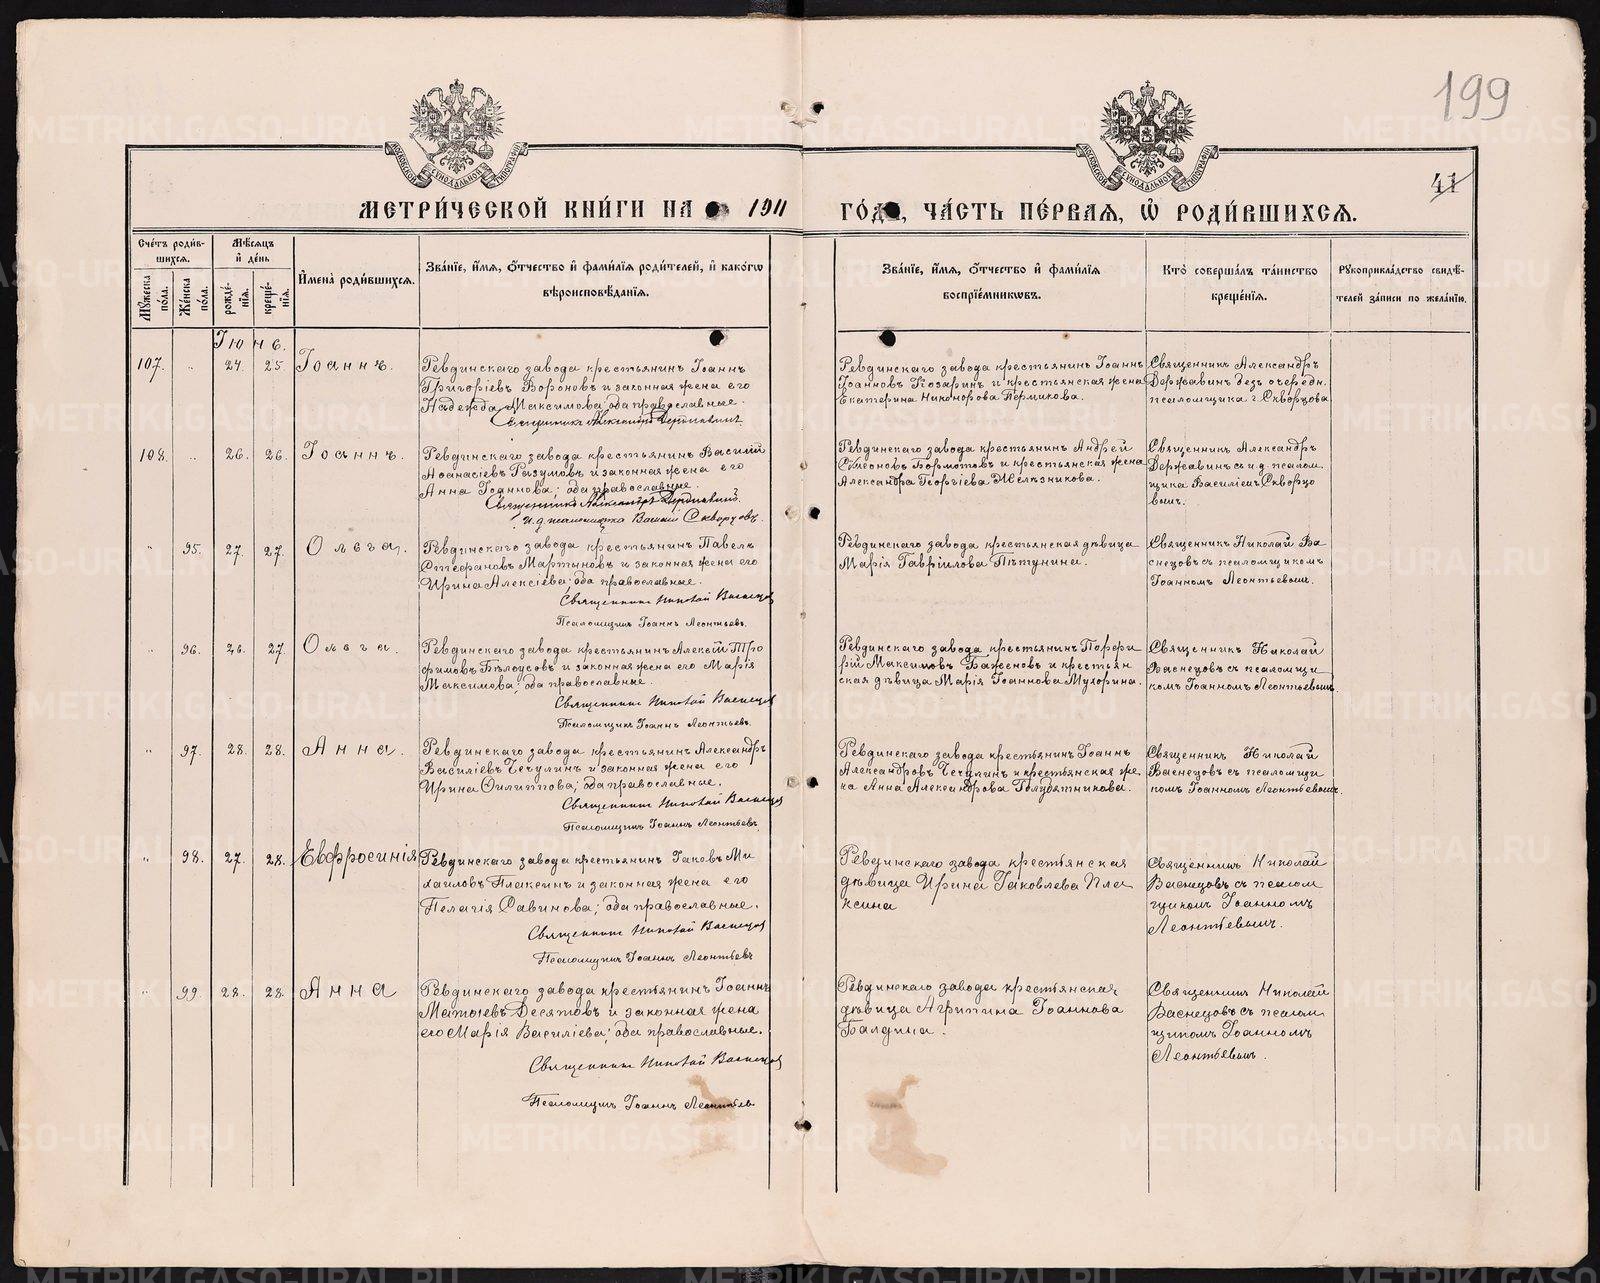 199
41
МЕТРИ́ЧЕСКОЙ КНИ́ГИ НА 1911 ГО́ДА, ЧА́СТЬ ПЕ́РВАЯ, Ѽ РОДИ́ВШИХСЯ.
Сче́тъ роди́в-
шихся.
Мꙋ́жеска по́ла.
Же́нска по́ла.
Мѣ́сяцъ
и́ де́нь
рожде́-
нїя.
креще́-
нїя.
И́мена̀ роди́вшихся.
Зва́нїе, и́мя, ѻ́тчество и́ фами́лїя роди́телей, и́ како́гѡ
вѣроисповѣ́данїя.
Зва́нїе, и́мя, ѻ́тчество и́ фами́лїя
воспрїе́мникѡвъ.
Кто̀ соверша́лъ та́инство
креще́нїя.
Рꙋкоприкла́дство свидѣ́-
телей за́писи по жела́нїю.
Іюнь.
107. " 24. 25. Іоаннъ.
Ревдинскаго завода крестьянинъ Іоаннъ
Григоріевъ Вороновъ и законная жена его
Надежда Максимова; оба православные.
Священникъ Александръ Державинъ
Ревдинскаго завода крестьянинъ Іоаннъ
Іоанновъ Козаринъ и крестьянская жена
Екатерина Никонорова Пермикова.
Священникъ Александръ
Державинъ безъ очередн.
псаломщика г. Скворцова
108. " 26. 26. Іоаннъ.
Ревдинскаго завода крестьянинъ Василій
Аѳанасіевъ Разумовъ и законная жена его
Анна Іоаннова; оба православные.
Священникъ Александръ Державинъ.
И. д. псаломщика Василій Скворцовъ.
Ревдинскаго завода крестьянинъ Андрей
Симеоновъ Бормотовъ и крестьянская жена
Александра Георгіева Желѣзникова.
Священникъ Александръ
Державинъ съ и. д. псалом
щика Василіемъ Скворцо
вымъ.
" 95. 27. 27. Ольга.
Ревдинскаго завода крестьянинъ Павелъ
Стефановъ Мартыновъ и законная жена его
Ирина Алексіева; оба православные.
Священникъ Николай Васнецов
Псаломщикъ Іоаннъ Леонтьевъ.
Ревдинскаго завода крестьянская дѣвица
Марія Гавріилова Пѣтунина.
Священникъ Николай Ва
снецовъ съ псаломщикомъ
Іоанномъ Леонтьевымъ.
" 96. 26. 27. Ольга.
Ревдинскаго завода крестьянинъ Алексій Тро
фимовъ Бѣлоусовъ и законная жена его Марія
Максимова; оба православные.
Священникъ Николай Васнецов
Псаломщикъ Іоаннъ Леонтьевъ.
Ревдинскаго завода крестьянинъ Порфи
рій Максимовъ Баженовъ и крестьян
ская дѣвица Марія Іоаннова Мухорина.
Священникъ Николай
Васнецовъ съ псаломщи
комъ Іоанномъ Леонтьевымъ
" 97. 28. 28. Анна.
Ревдинскаго завода крестьянинъ Александръ
Василіевъ Чечулинъ и законная жена его
Ирина Филиппова; оба православные.
Священникъ Николай Васнецов
Псаломщикъ Іоаннъ Леонтьевъ.
Ревдинскаго завода крестьянинъ Іоаннъ
Александровъ Чечулинъ и крестьянская же
на Анна Александрова Голубятникова.
Священникъ Николай
Васнецовъ съ псаломщи
комъ Іоанномъ Леонтьевымъ.
" 98. 27. 28. Евфросинія
Ревдинскаго завода крестьянинъ Іаковъ Ми
хаиловъ Плаксинъ и законная жена его
Пелагія Савинова; оба православные.
Священникъ Николай Васнецов
Псаломщикъ Іоаннъ Леонтьевъ
Ревдинскаго завода крестьянская
дѣвица Ирина Іаковлева Пла
ксина
Священникъ Николай
Васнецовъ съ псалом
щикомъ Іоанномъ
Леонтьевымъ.
" 99. 28. 28. Анна
Ревдинскаго завода крестьянинъ Іоаннъ
Матѳіевъ Десятовъ и законная жена
его Марія Василіева; оба православные.
Священникъ Николай Васнецов
Псаломщикъ Іоаннъ Леонтьев
Ревдинскаго завода крестьянская
дѣвица Агрипина Іоаннова
Балдина.
Священникъ Николай
Васнецовъ съ псалом
щикомъ Іоанномъ
Леонтьевымъ.